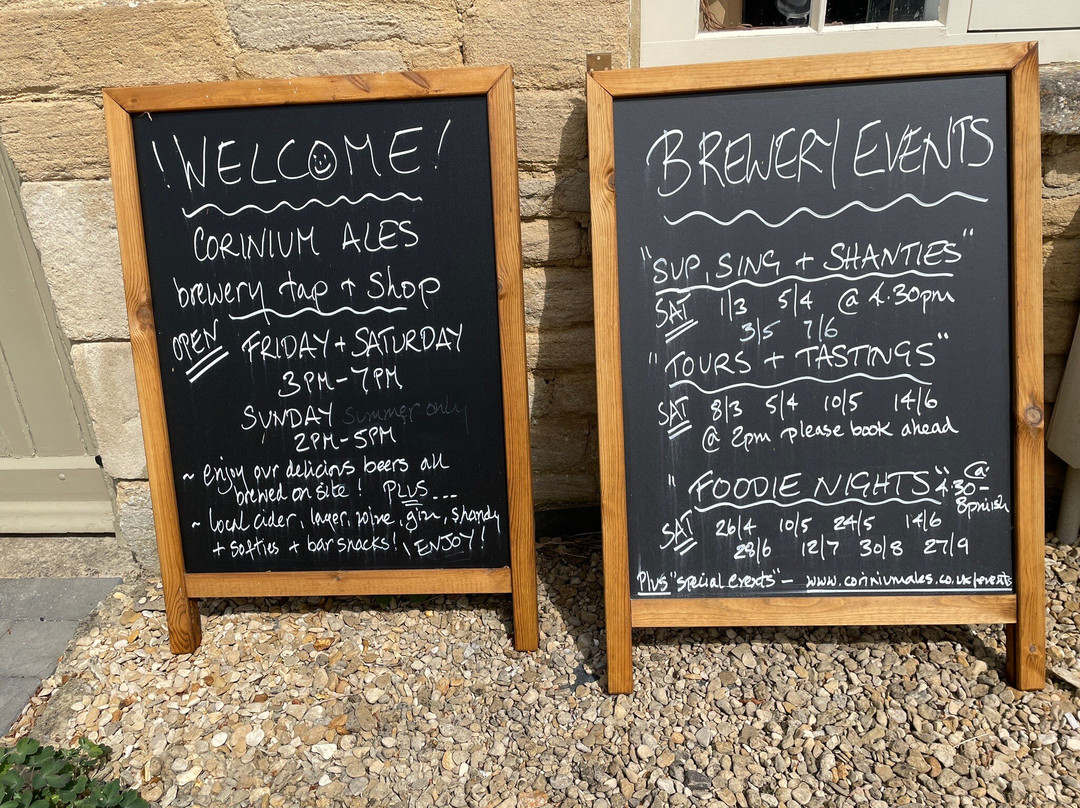 ! WELCOME !
CORINIUM ALES
brewery tap + Shop
OPEN FRIDAY + SATURDAY
3PM - 7PM
SUNDAY summer only
2PM - 5PM
~ enjoy our delicious beers all
brewed on site! PLUS...
~ local cider, lager, wine, gin, shandy
+ softies + bar snacks! \ ENJOY!
BREWERY EVENTS
"SUP, SING + SHANTIES"
SAT 1/3 5/4 @ 4.30pm
3/5 7/6
"TOURS + TASTINGS"
SAT 8/3 5/4 10/5 14/6
@ 2pm please book ahead
"FOODIE NIGHTS" @ 4.30-
8pmish
SAT 26/4 10/5 24/5 14/6
28/6 12/7 30/8 27/9
Plus "special events" - www.coriniumales.co.uk/events